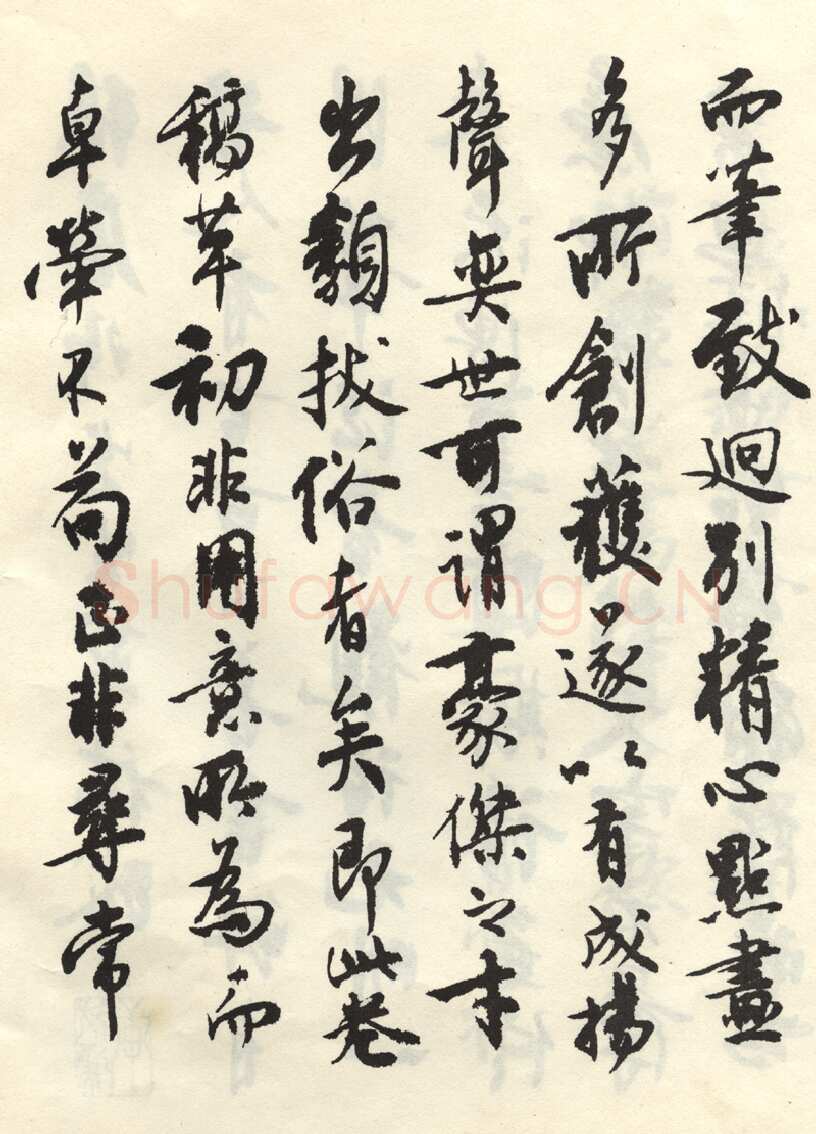 而筆致迥別精心點畫
多所創獲遂以有成揚
聲奕世可謂豪傑之才
出類拔俗者矣即此卷
稿草初非用意所為而
卓犖不苟正非尋常
Shufawang.CN